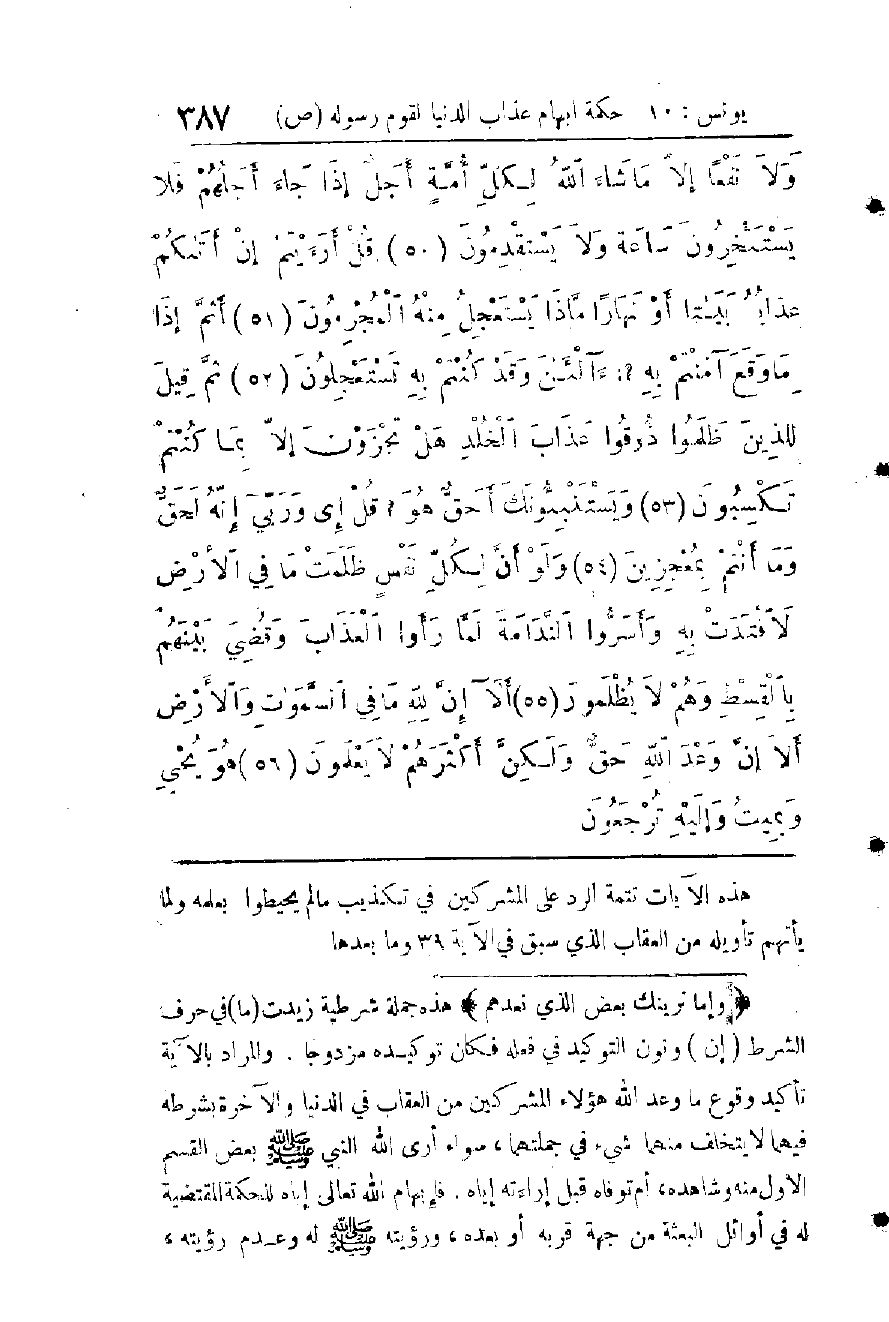 يونس : ١٠ حكمة ابهام عذاب الدنيا لقوم رسوله (ص) ٣٨٧
وَلاَ نَفْعًا إلاَّ مَاشَاءَ ٱللهُ لِـكلِّ أُمَّةٍ أَجَلٌ إذَا جَاءَ أَجَلُهُمْ فَلا
يَسْتَئْخِرُونَ سَاعَة وَلاَ يَسْتَقْدِمُونَ (٥٠) قُلْ أَرَءَيْتُمْ إنْ أَتَـٰكُمْ
عذابُهُ بَيَـٰتا أَوْ نَهَارًا مَّاذَا يَسْتَعْجِلُ مِنْهُ ٱلْمُجْرِمُونَ (٥١) أَثُمَّ إذَا
مَاوَقَعَ آمَنْتُمْ بِهِ ؟: ءَآلْـَٰٔنَ وَقَدْ كُنْتُمْ بِهِ تَسْتَعْجِلُونَ (٥٢) ثُمَّ قِيلَ
لِلذِينَ ظَلَمُوا ذُوقُوا عَذَابَ ٱلْخُلْدِ هَلْ تُجْزَوْنَ إلاَّ بِمَـا كُنْتُمْ
تَـكْسِبُونَ (٥٣) وَيَسْتَنْبِـئُونَكَ أَحَقٌّ هُوَ ؟ قُلْ إى وَرَبِّيَ إنَّهُ لَحَقٌّ
وَمَا أَنْتُمْ بِمُعْجِزِينَ (٥٤) وَلَوْ أَنَّ لِـكُلِّ نَفْسٍ ظَلَمَتْ مَا فِي ٱلأَرْضِ
لاَفْتَدَتْ بِهِ وَأَسَرُّوا ٱلنَّدَامَةَ لَمَّا رَأَوا ٱلْعَذَابَ وَقُضِيَ بَيْنَهُمْ
بِٱلْقِسْطِ وَهُمْ لاَ يُظْلَمُونَ (٥٥) أَلَآ إنَّ لِلهِ مَا فِي ٱلسَّمَوَاتِ وَٱلأَرْضِ
أَلاَ إنَّ وَعْدَ ٱللهِ حَقٌّ وَلَـكِنَّ أَكْثَرَهُمْ لاَ يَعْلَمُونَ (٥٦) هُوَ يُحْيِي
وَيمِيتُ وَإلَيْهِ تُرْجَعُونَ
هذه الآيات تتمة الرد على المشركين في تـكذيب مالم يحيطوا بعلمه ولما
يأتهم تأويله من العقاب الذي سبق في الآية ٣٩ وما بعدها
﴿ وإما نرينك بعض الذي نعدهم ﴾ هذه جملة شرطية زيدت (ما) في حرف
الشرط (إن) ونون التوكيد في فعله فـكان توكيـده مزدوجا . والمراد بالآية
تأكيد وقوع ما وعد الله هؤلاء المشركين من العقاب في الدنيا والآخرة بشرطه
فيهما لا يتخلف منهما شيء في جملتهما، سواء أرى الله النبي ﷺ بعض القسم
الاول منه وشاهده، أم توفاه قبل إراءته إياه . فإبهام الله تعالى إياه للحكمة المقتضية
له في أوائل البعثة من جهة قربه أو بعده، ورؤيته ﷺ له وعـدم رؤيته ،